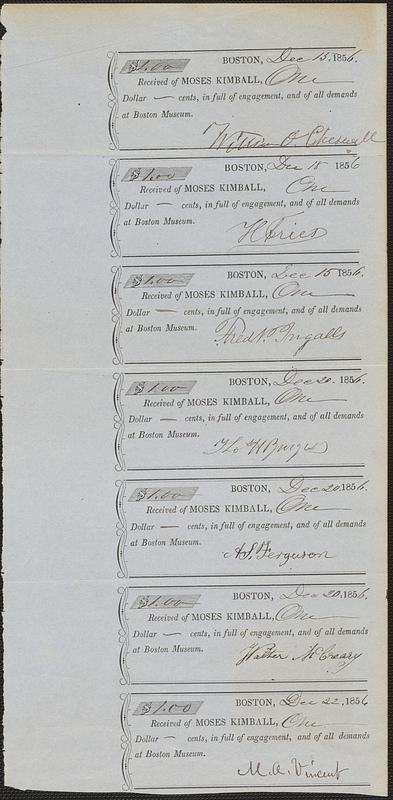 $1.00 BOSTON, Dec 15, 1856.
Received of MOSES KIMBALL, One
Dollar — cents, in full of engagement, and of all demands
at Boston Museum.
William O. Cheswell
$1.00 BOSTON, Dec 15 1856
Received of MOSES KIMBALL, One
Dollar — cents, in full of engagement, and of all demands
at Boston Museum.
H Fries
$1.00 BOSTON, Dec 15 1856.
Received of MOSES KIMBALL, One
Dollar — cents, in full of engagement, and of all demands
at Boston Museum.
Fred P. Ingalls
$1.00 BOSTON, Dec 20. 1856.
Received of MOSES KIMBALL, One
Dollar — cents, in full of engagement, and of all demands
at Boston Museum.
$1.00 BOSTON, Dec 20. 1856.
Received of MOSES KIMBALL, One
Dollar — cents, in full of engagement, and of all demands
at Boston Museum.
A. S. Ferguson
$1.00 BOSTON, Dec 20. 1856.
Received of MOSES KIMBALL, One
Dollar — cents, in full of engagement, and of all demands
at Boston Museum.
Walter McCreary
$1.00 BOSTON, Dec 22, 1856
Received of MOSES KIMBALL, One
Dollar — cents, in full of engagement, and of all demands
at Boston Museum.
M. A. Vincent